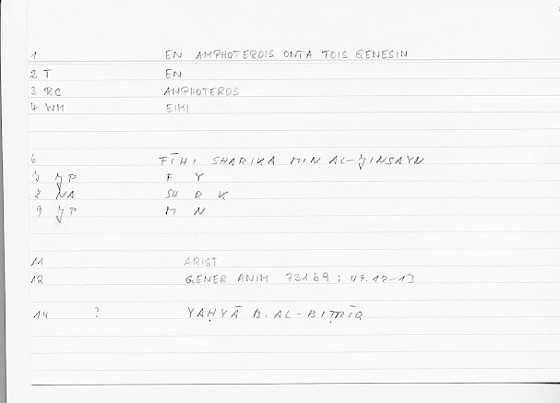 1 EN AMPHOTEROIS ONTA TOIS GENESIN
2 T EN
3 RC AMPHOTEROS
4 WM EIMI
6 FĪHI SHARIKA MIN AL-JINSAYN
7 JP F Y
8 NA SH R K
9 JP M N
11 ARIST
12 GENER ANIM 731b9; 47.12-13
14 ? YAḤYĀ B. AL-BIṬRĪQ